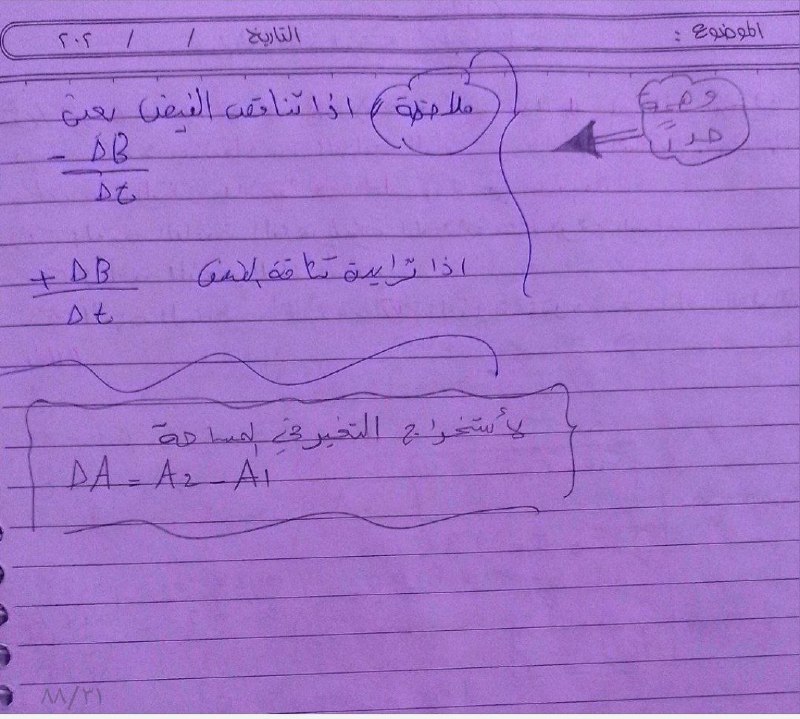 الموضوع : التاريخ / / ٢٠٢
مهمة جداً
ملاحظة / اذا تناقص الفيض يعني
- ΔB
Δt
اذا تزايدة كثافة الفيض + ΔB
Δt
لأستخراج التغير في المساحة
ΔA = A2 - A1
٨٨/٢١